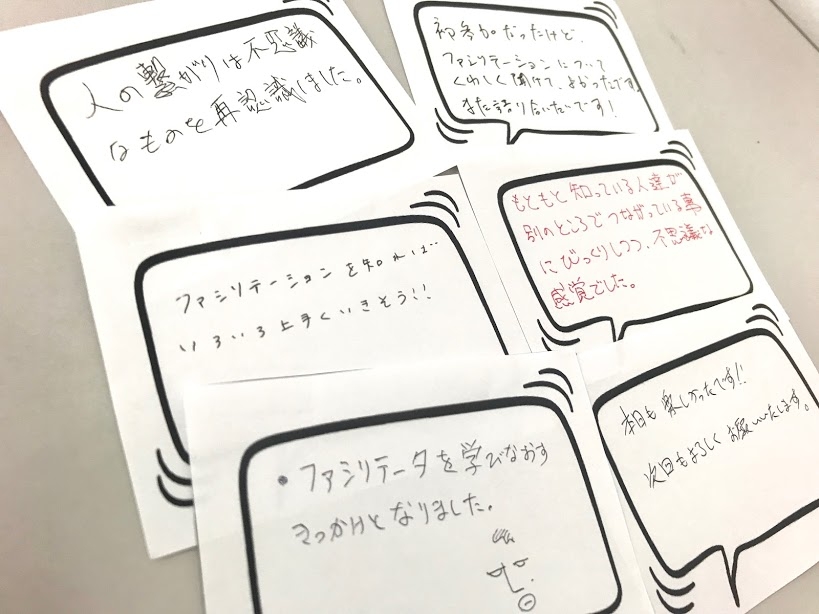 人の繋がりは不思議
なものを再認識しました。
初参加だったけど、
ファシリテーションについて
くわしく聞けて、よかったです
また語り合いたいです！
ファシリテーションを知れば
いろいろ上手くいきそう!!
もともと知っている人達が
別のところでつながっている事
にびっくりしつつ、不思議な
感覚でした。
・ファシリテータを学びなおす
きっかけとなりました。
本日も楽しかったです!!
次回もよろしくお願いいたします。